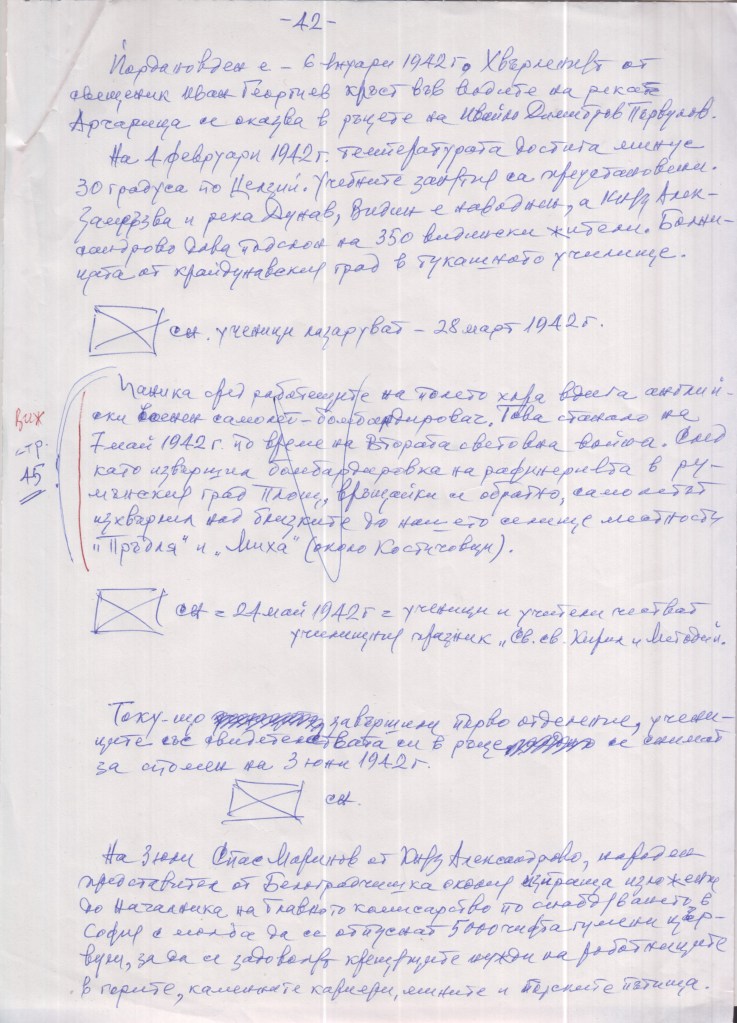 -42-
Йордановден е - 6 януари 1942 г. Хвърленият от
свещеник Иван Георгиев кръст във водите на река
Арчарица се оказва в ръцете на Ивайло Димитров Първулов.
На 4 февруари 1942 г. температурата достига минус
30 градуса по Целзий. Учебните занятия са преустановени.
Замръзва и река Дунав, Видин е наводнен, а Княз Алек-
сандрово дава подслон на 350 видински жители. Болни-
цата от крайдунавския град в тукашното училище.
сн. ученици лазаруват - 28 март 1942 г.
Паника сред работещите на полето хора вдига англий-
ски военен самолет-бомбардировач. Това станало на
7 май 1942 г. по време на Втората световна война. След
като извършил бомбардировка на рафинерията в ру-
мънския град Плоещ, връщайки се обратно, самолетът
изхвърлил над близките до нашето селище местности
"Пръдля" и "Миха" (около Костичовци).
Виж
стр.
45
сн = 24 май 1942 г = ученици и учители честват
училищния празник "Св. св. Кирил и Методий.
Току-що завършили първо отделение, учени-
ците със свидетелствата си в ръце се снимат
за спомен на 3 юни 1942 г.
сн.
На 3 юни Спас Маринов от Княз Александрово, народен
представител от Белоградчишка околия изпраща изложение
до Началника на Главното комисарство по снабдяването в
София с молба да се отпуснат 5000 чифта гумени цър-
вули, за да се задоволят крещящите нужди на работниците
в горите, каменните кариери, мините и